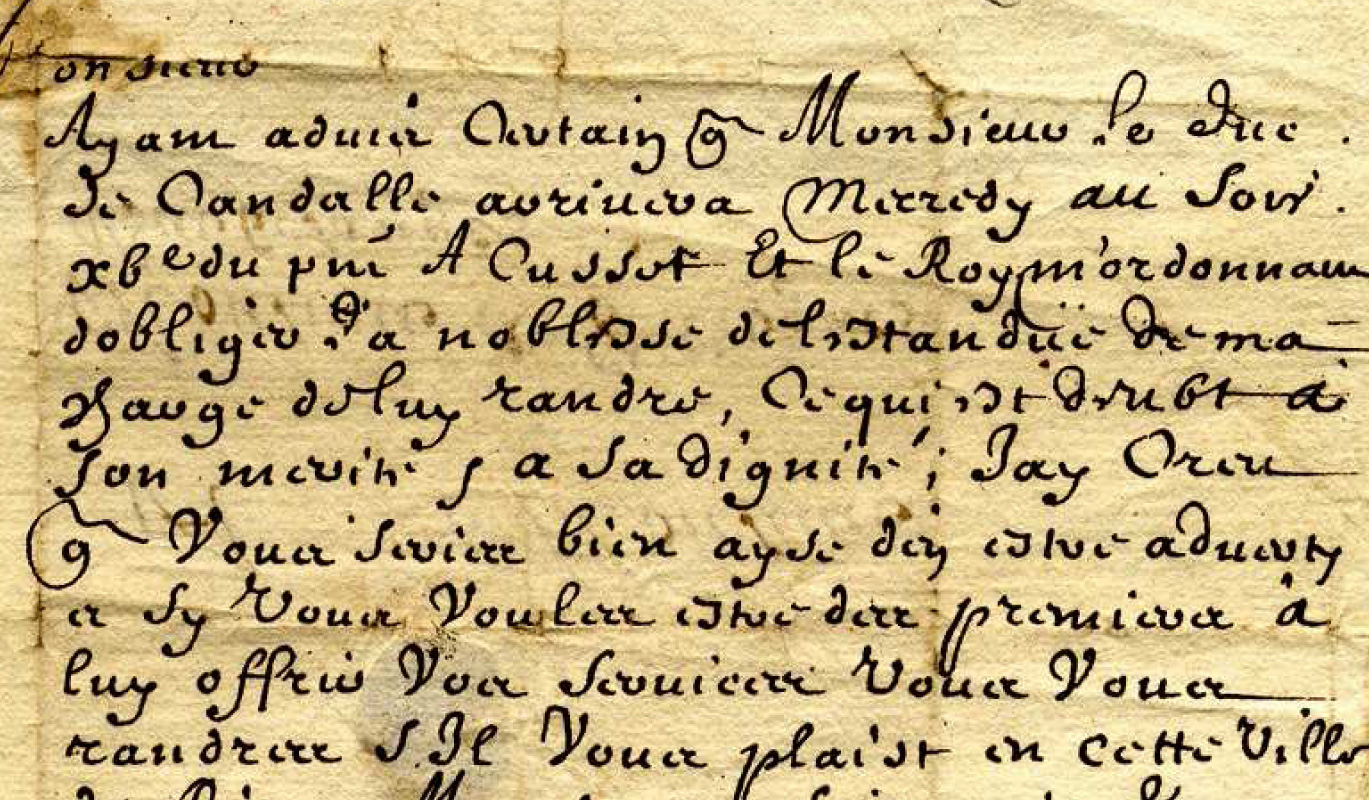 onsieur
Ayant aduis Certain q Monsieur le duc
de Candalle arriuera Mecredy au soir
xbe du pnt A Cusset Et le Roy m'ordonnant
dobliger la noblesse de lestanduë de ma
charge de luy randre, Ce qui est deubt a
son merite & a sa dignité; Jay Creu
q Vous seriez bien ayse den estre aduerty
et sy Vous Voulez estre des premiers à
luy offrir Vos seruices Vous Vous
randrez S.Il Vous plaist en cette Ville